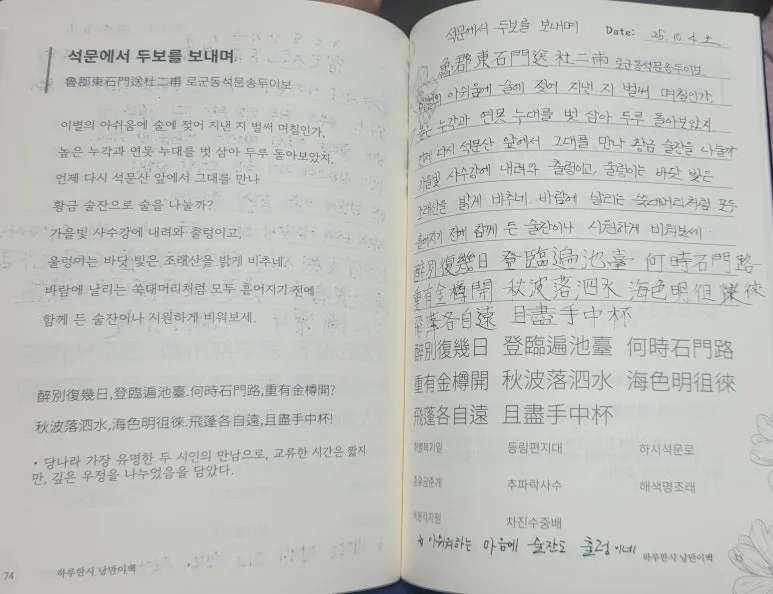 석문에서 두보를 보내며
魯郡東石門送杜二甫 로군동석문송두이보
이별의 아쉬움에 술에 젖어 지낸 지 벌써 며칠인가,
높은 누각과 연못 누대를 벗 삼아 두루 돌아보았지.
언제 다시 석문산 앞에서 그대를 만나
황금 술잔으로 술을 나눌까?
가을빛 사수강에 내려와 출렁이고,
울렁이는 바닷 빛은 조래산을 밝게 비추네.
바람에 날리는 쑥대머리처럼 모두 흩어지기 전에
함께 든 술잔이나 시원하게 비워보세.
醉別復幾日,登臨遍池臺.何時石門路,重有金樽開?
秋波落泗水,海色明徂徠.飛蓬各自遠,且盡手中杯!
• 당나라 가장 유명한 두 시인의 만남으로, 교류한 시간은 짧지
만, 깊은 우정을 나누었음을 담았다.
74 하루한시 낭만이백
석문에서 두보를 보내며 Date: 25. 10. 4. 토
魯郡東石門送杜二甫 로군동석문송두이보
이별의 아쉬움에 술에 젖어 지낸 지 벌써 며칠인가,
높은 누각과 연못 누대를 벗 삼아 두루 돌아보았지
언제 다시 석문산 앞에서 그대를 만나 황금 술잔을 나눌까
가을빛 사수강에 내려와 출렁이고, 울렁이는 바닷 빛은
조래산을 밝게 비추네. 바람에 날리는 쑥대머리처럼 모두
흩어지기 전에 함께 든 술잔이나 시원하게 비워보세
醉別復幾日 登臨遍池臺 何時石門路
重有金樽開 秋波落泗水 海色明徂徠
飛蓬各自遠 且盡手中杯
醉別復幾日 登臨遍池臺 何時石門路
重有金樽開 秋波落泗水 海色明徂徠
飛蓬各自遠 且盡手中杯
취별복기일 등림편지대 하시석문로
중유금준개 추파락사수 해색명조래
비봉각자원 차진수중배
아쉬워하는 마음에 술잔도 출렁이네
하루한시 낭만이백 75